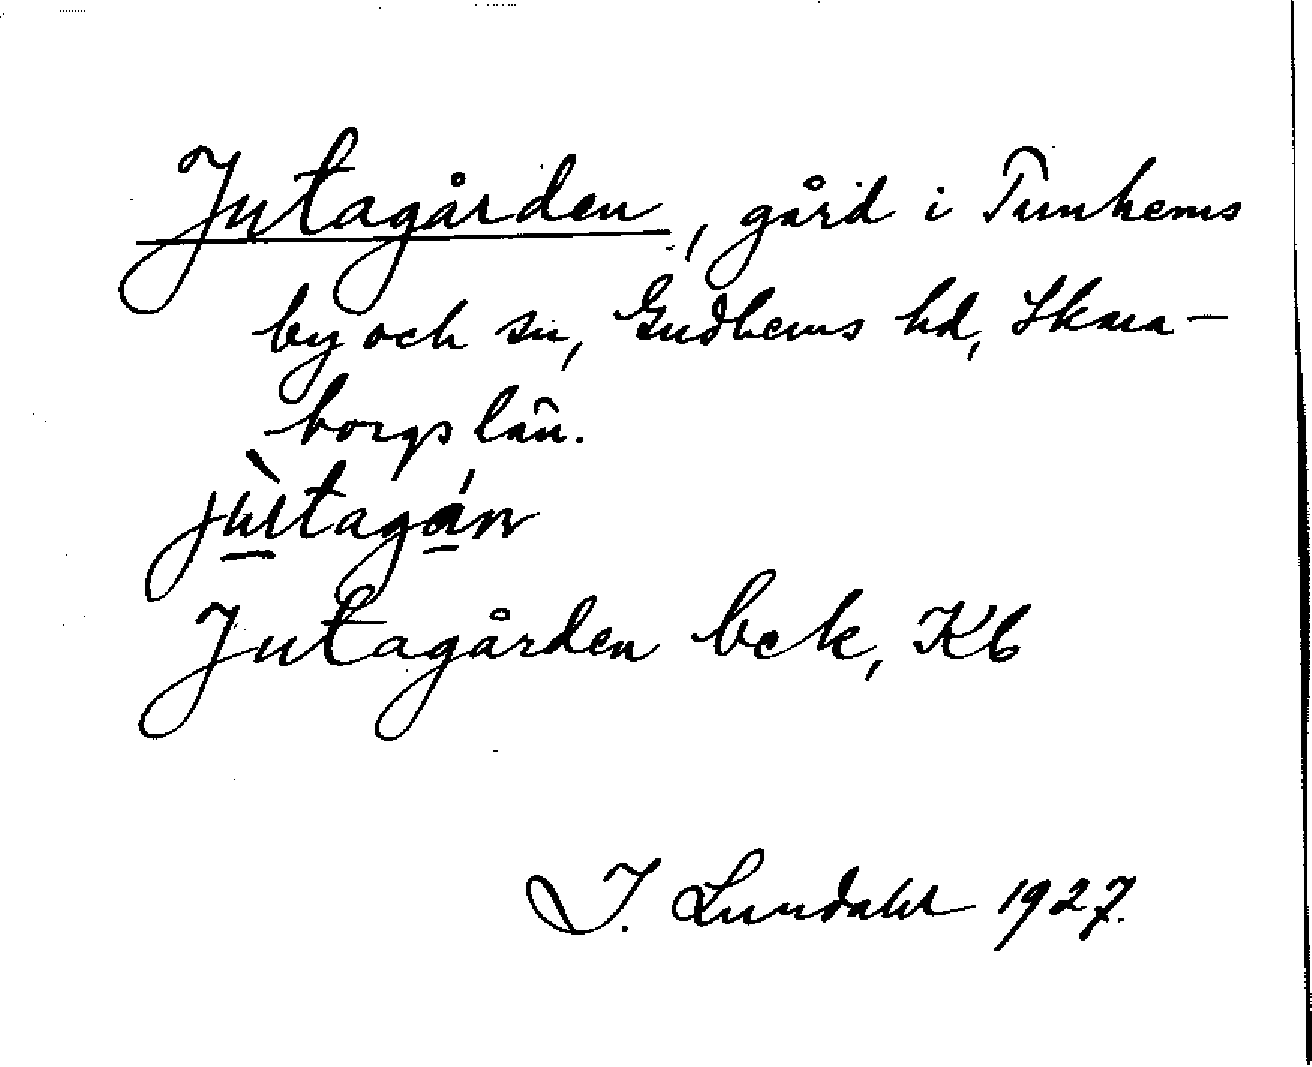 Jutagården, gård i Tunhems
by och sn, Gudhems hd, Skara-
borgs län.
Jutagården bek, Kb
I. Lundahl 1927.